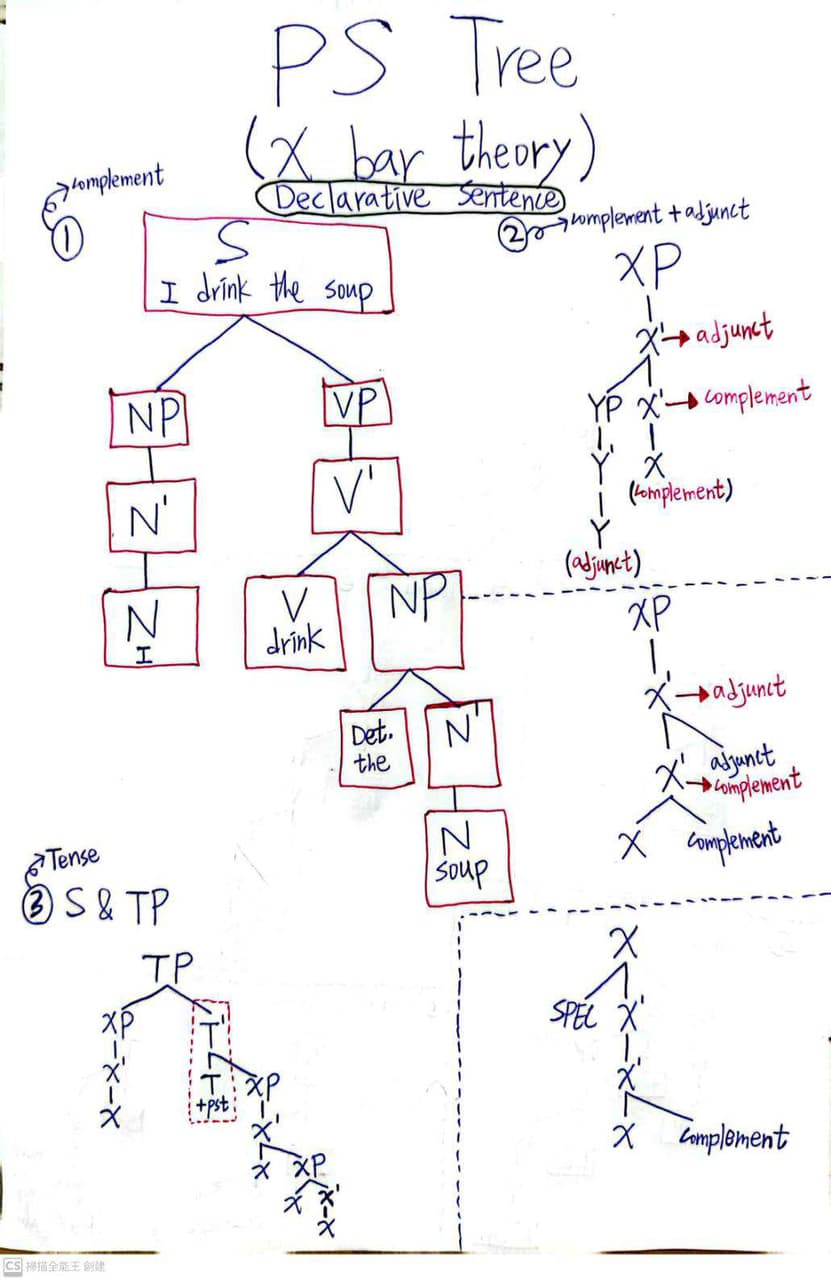 PS Tree
(X bar theory)
Declarative Sentence
complement
①
S
I drink the soup
NP VP
N' V'
N
I
V
drink
NP
Det.
the
N'
N
soup
② complement + adjunct
XP
X' → adjunct
YP X' → complement
Y' X
(complement)
Y
(adjunct)
XP
X' → adjunct
adjunct
X' → complement
X complement
X
SPEC X'
X'
X complement
Tense
③ S & TP
TP
XP T'
X' T
+pst
XP
X X'
X XP
X X'
X
CS 掃描全能王 創建